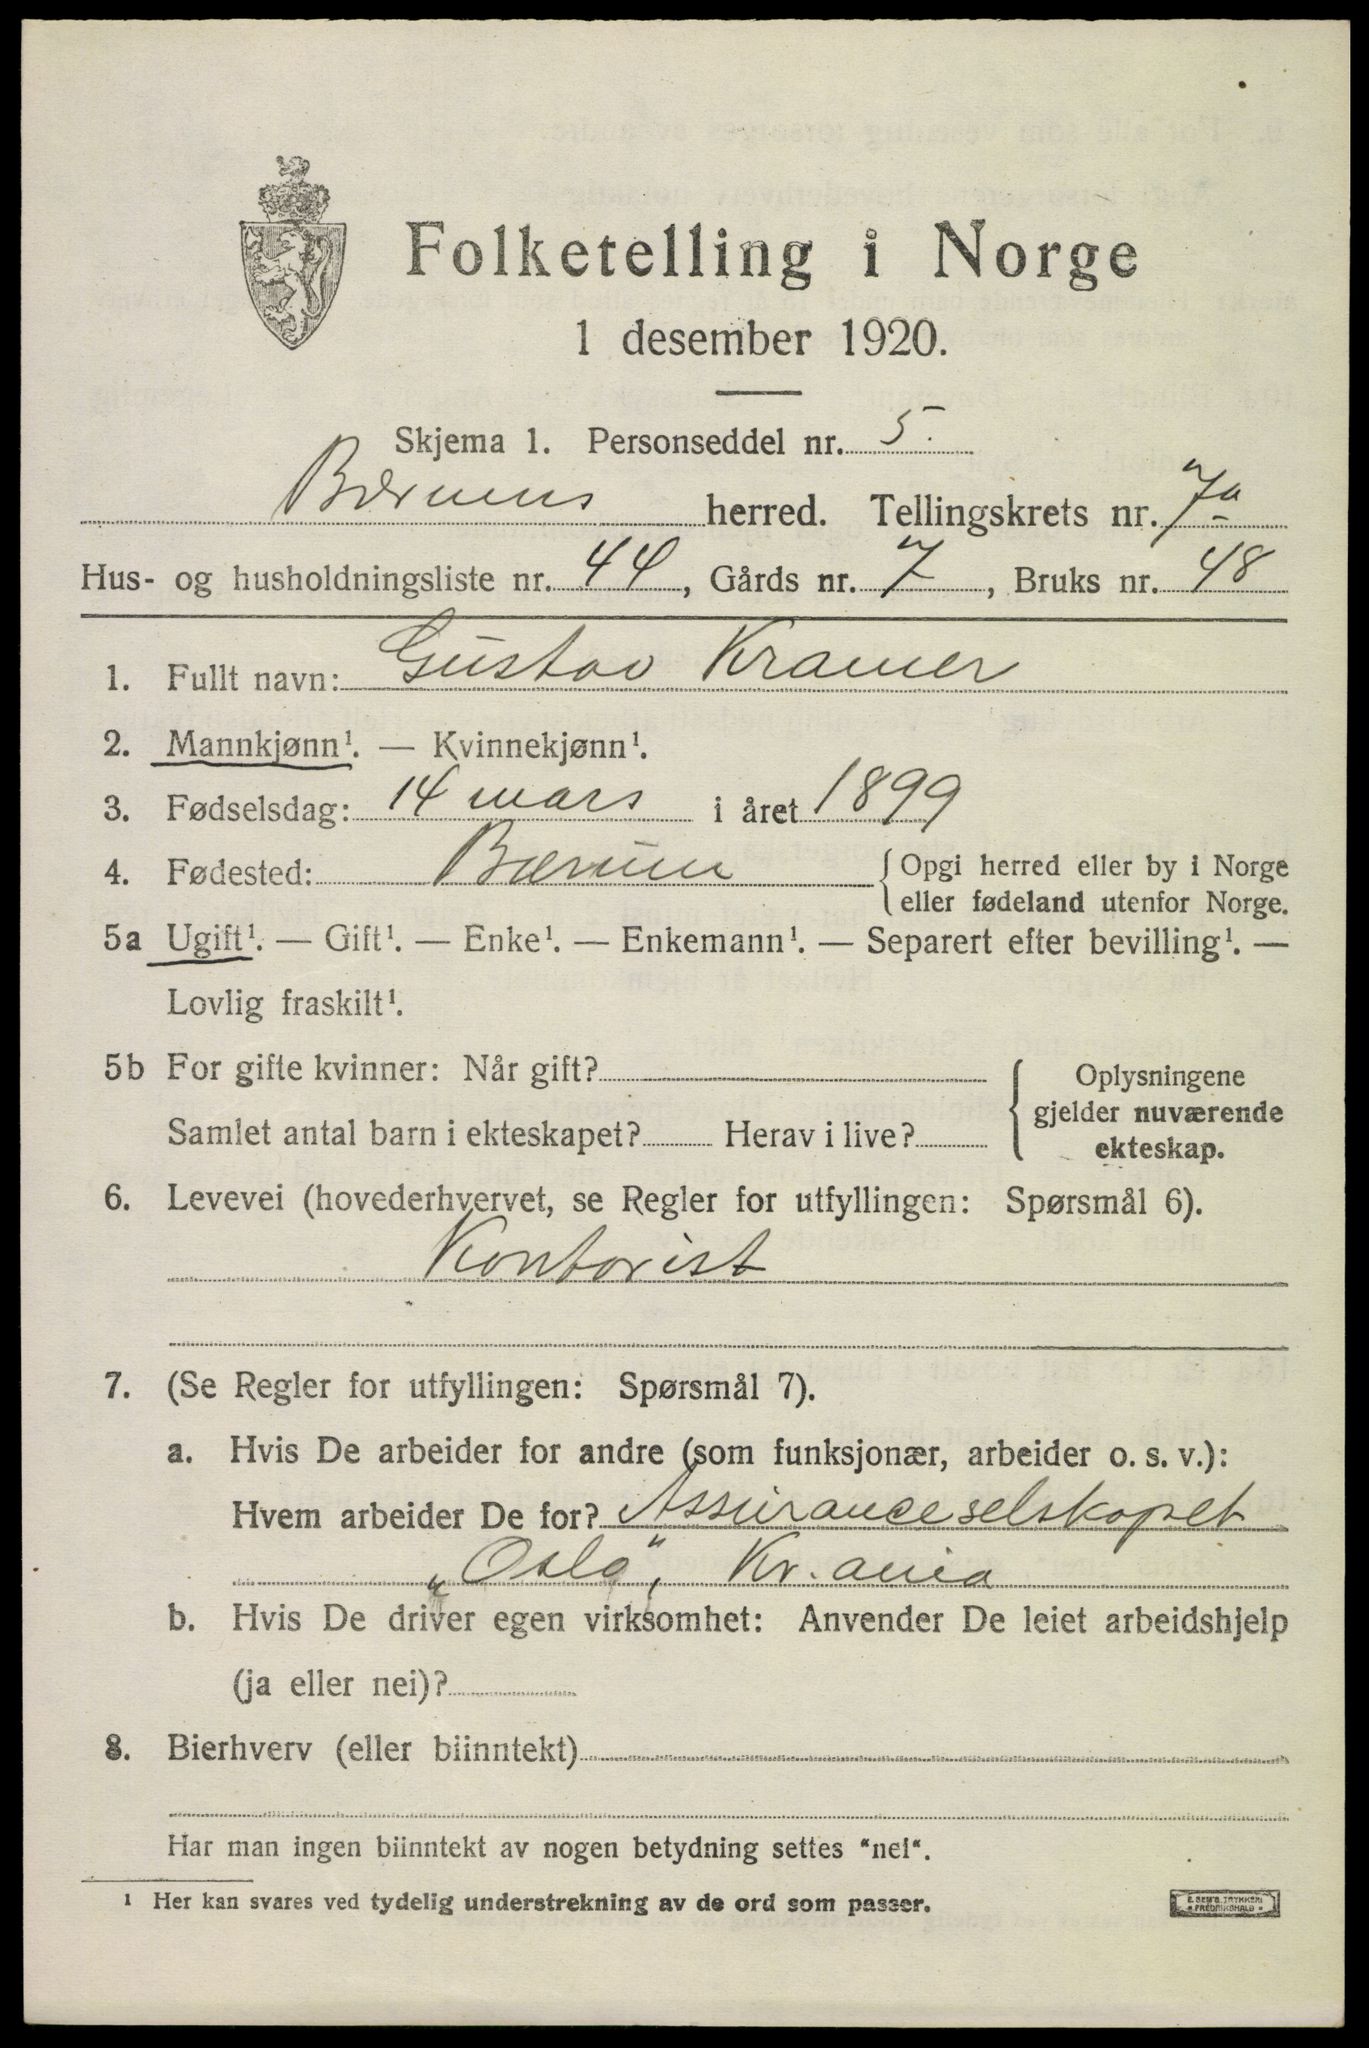 Folketelling i Norge
1 desember 1920.
Skjema 1. Personseddel nr. 5.
Bærums herred. Tellingskrets nr. 7a
Hus- og husholdningsliste nr. 44, Gårds nr. 7, Bruks nr. 48
1. Fullt navn: Gustav Kramer
2. Mannkjønn¹. — Kvinnekjønn¹.
3. Fødselsdag: 14 mars i året 1899
4. Fødested: Bærum { Opgi herred eller by i Norge
eller fødeland utenfor Norge.
5a Ugift¹. — Gift¹. — Enke¹. — Enkemann¹. — Separert efter bevilling¹. —
Lovlig fraskilt¹.
5b For gifte kvinner: Når gift? { Oplysningene
gjelder nuværende
Samlet antal barn i ekteskapet? Herav i live?
ekteskap.
6. Levevei (hovederhvervet, se Regler for utfyllingen: Spørsmål 6).
Kontorist
7. (Se Regler for utfyllingen: Spørsmål 7).
a. Hvis De arbeider for andre (som funksjonær, arbeider o. s. v.):
Hvem arbeider De for? Assuranceselskapet
„Oslo", Kr.ania
b. Hvis De driver egen virksomhet: Anvender De leiet arbeidshjelp
(ja eller nei)?
8. Bierhverv (eller biinntekt)
Har man ingen biinntekt av nogen betydning settes "nei".
¹ Her kan svares ved tydelig understrekning av de ord som passer.
E. SEM'S TRYKKERI
FREDRIKSHALD